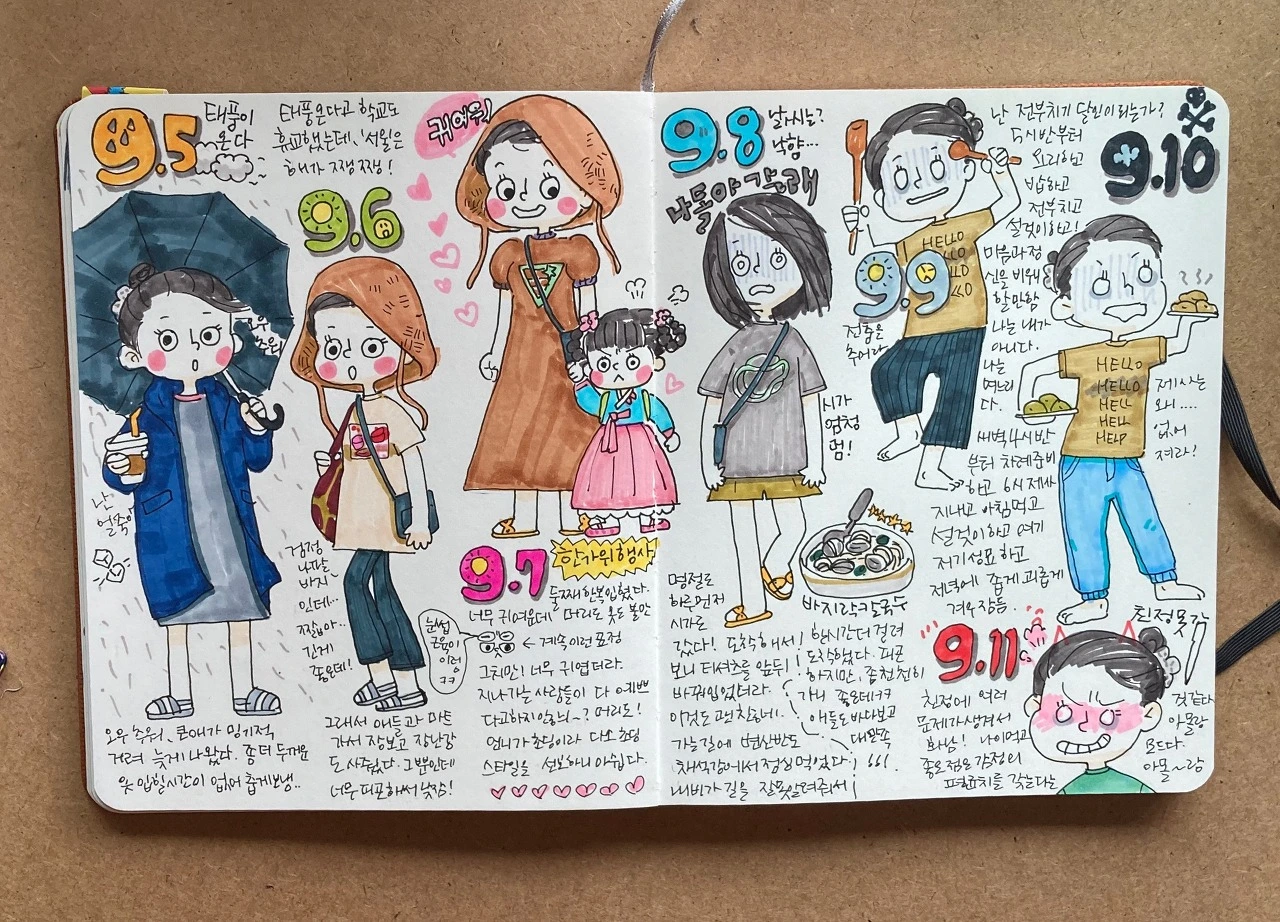 9.5
태풍이
온다
오우
추워
난
얼죽아
오우 추워, 큰애가 밍기적
거려 늦게 나왔다. 좀 더 두꺼운
옷 입힐시간이 없어 춥게보냄..
태풍온다고 학교도
휴교했는데, 서울은
해가 쨍쨍!
9.6
검정
나팔
바지
인데…
짧아…
긴게
좋은데!
그래서 애들과 마트
가서 장보고 장난감
도 사줬다. 그뿐인데
너무피곤하여 낮잠!
귀여워
9.7
한가위행사
둘째 한복입혔다.
너무 귀여운데 머리도 옷도 불안
← 계속이런표정
눈썹
교육이
이렁
ㅋㅋ
그치만! 너무 귀엽더라.
지나가는 사람들이 다 예쁘
다고하지안흐니~? 머리도!
언니가 초딩이라 다오 초딩
스타일을 선보하니 아쉽다.
9.8
날씨는?
낙향…
나돌아갈래
시가
엄청
멈!
바지락칼국수
명절로
하루먼저
시가로
갔다! 도착해서
보니 티셔츠를 앞뒤
바꿔입었더라.
이것도 괜찮네.
가는길에 변산반도
채석강에서 점심먹었다
내비가 길을 잘못알려줘서
한시간더 걸려
도착했다. 피곤
하지만, 좀 천천히
가니 좋은데ㅋㅋ
애들도 바다보고
대만족
9.9
HELLO
전줌은
추어라
난 전부치기 달인이 되는가?
5시반부터
요리하고
밥하고
전부치고
설겆이하고!
마음과정
신을 비워
할만함
나는 내가
아니다.
나는
며느리
다.
9.10
HELLO
HELLO
HELL
HELL
HELP
제사는
왜….
없어
져라!
새벽4시반
부터 차례준비
하고 6시제사
지내고 아침먹고
설겆이하고 여기
저기성묘하고
저녁에 좁게 괴롭게
겨우잠듬.
9.11
친정못감
친정에 여러
문제가생겨서
화남! 나이먹고
좋은점은 감정의
평화를 갖는다는
것같다.
아몰랑
모드다.
아몰~랑